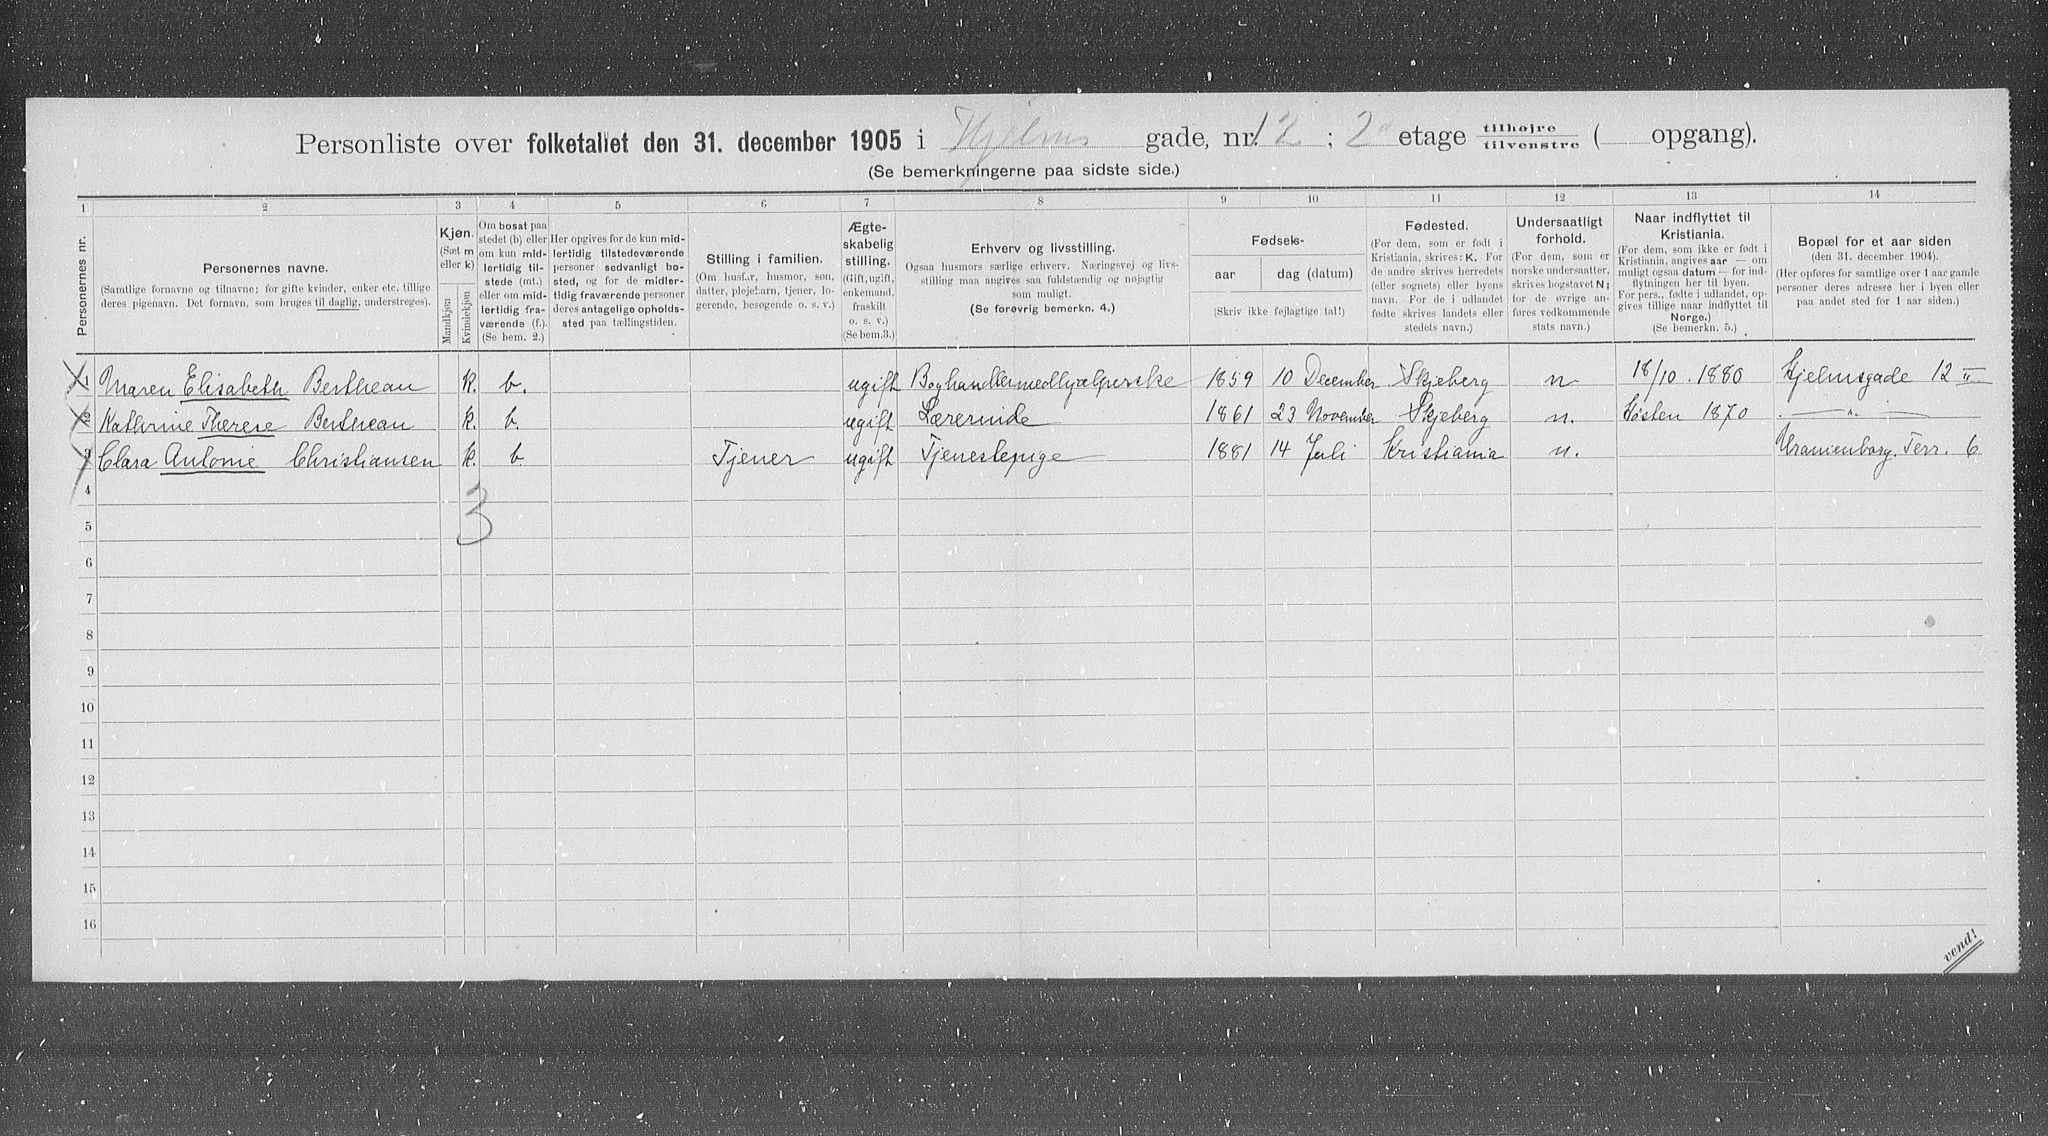 Personliste over folketallet den 31. december 1905 i Hjelms gade, nr. 12; 2d etage tilhøjre tilvenstre ( opgang).
(Se bemerkningerne paa sidste side.)
1 2 3 4 5 6 7 8 9 10 11 12 13 14
Personernes nr.
Personernes navne.
(Samtlige fornavne og tilnavne; for gifte kvinder, enker etc. tillige
deres pigenavn. Det fornavn, som bruges til daglig, understreges).
Kjøn.
(Sæt m
eller k)
Mandkjøn
Kvindekjøn
Om bosat paa
stedet (b) eller
om kun mid-
lertidig til-
stede (mt.)
eller om mid-
lertidig fra-
værende (f.).
(Se bem. 2.)
Her opgives for de kun mid-
lertidig tilstedeværende
personer sedvanligt bo-
sted, og for de midler-
tidig fraværende personer
deres antagelige opholds-
sted paa tællingstiden.
Stilling i familien.
(Om husfar, husmor, søn,
datter, plejebarn, tjener, lo-
gerende, besøgende o. s. v.)
Ægte-
skabelig
stilling.
(Gift, ugift,
enkemand,
fraskilt
o. s. v.)
(Se bem.3.)
Erhverv og livsstilling.
Ogsaa husmors særlige erhverv. Næringsvej og livs-
stilling maa angives saa fuldstændig og nøjagtig
som muligt.
(Se forøvrig bemerkn. 4.)
Fødsels-
aar
dag (datum)
(Skriv ikke fejlagtige tal!)
Fødested.
(For dem, som er født i
Kristiania, skrives: K. For
de andre skrives herredets
(eller sognets) eller byens
navn. — For de i udlandet
fødte skrives landets eller
stedets navn.)
Undersaatligt
forhold.
(For dem, som er
norske undersaatter,
skrives bogstavet N;
for de øvrige an-
føres vedkommende
stats navn.)
Naar indflyttet til
Kristiania.
(For dem, som ikke er født i
Kristiania, angives aar — om
muligt ogsaa datum — for ind-
flytningen her til byen.
For pers., fødte i udlandet, op-
gives tillige naar indflyttet til
Norge.)
(Se bemerkn. 5.)
Bopæl for et aar siden
(den 31. december 1904).
(Her opføres for samtlige over 1 aar gamle
personer deres adresse her i byen eller
paa andet sted for 1 aar siden.)
1 Maren Elisabeth Bertheau k. b. ugift Boghandlermedhjælperske 1859 10 December Skjeberg n 18/10. 1880 Hjelmsgade 12 II
2 Kathrine Therese Bertheau k. b. ugift Lærerinde 1861 23 November Skjeberg n. Høsten 1870 — " —
3 Clara Antonie Christiansen k. b Tjener ugift Tjenestepige 1881 14 Juli Kristiania n. Uranienborg. Terr. 6
3
4
5
6
7
8
9
10
11
12
13
14
15
16
vend!